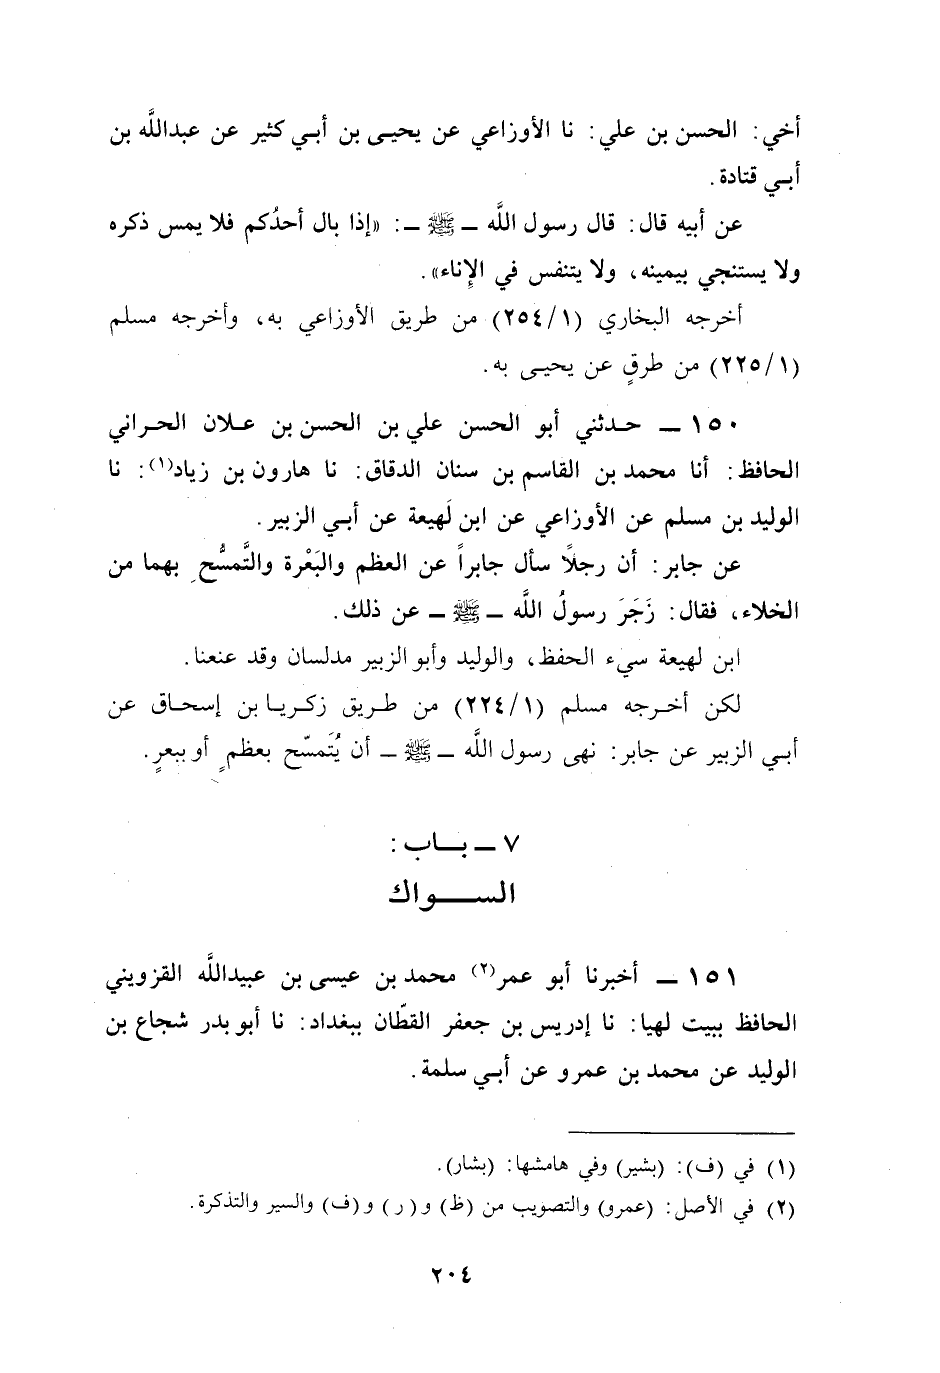 أخي: الحسن بن علي: نا الأوزاعي عن يحيـى بن أبـي كثير عن عبداللَّه بن
أبـي قتادة.
عن أبيه قال: قال رسول اللَّه ـ ﷺ ـ: «إذا بال أحدُكم فلا يمس ذكره
ولا يستنجي بيمينه، ولا يتنفس في الإِناء».
أخرجه البخاري (٢٥٤/١) من طريق الأوزاعي به، وأخرجه مسلم
(٢٢٥/١) من طرقٍ عن يحيـى به.
١٥٠ ـ حـدثني أبو الحسن علي بن الحسن بن عـلان الحـراني
الحافظ: أنا محمد بن القاسم بن سنان الدقاق: نا هارون بن زياد(١): نا
الوليد بن مسلم عن الأوزاعي عن ابن لَهيعة عن أبـي الزبير.
عن جابر: أن رجلًا سأل جابراً عن العظم والبَعْرة والتَّمسُّحِ بهما من
الخلاء، فقال: زَجَرَ رسولُ اللَّه ـ ﷺ ـ عن ذلك.
ابن لهيعة سيء الحفظ، والوليد وأبو الزبير مدلسان وقد عنعنا.
لكن أخـرجه مسلم (٢٢٤/١) من طـريق زكـريـا بن إسحـاق عن
أبـي الزبير عن جابر: نهى رسول اللَّه ـ ﷺ ـ أن يُتَمسّح بعظمٍ أو ببعرٍ.
٧ ـ بـــاب:
الســـواك
١٥١ ـ أخبرنا أبو عمر(٢) محمد بن عيسى بن عبيداللَّه القزويني
الحافظ ببيت لهيا: نا إدريس بن جعفر القطّان ببغداد: نا أبو بدر شجاع بن
الوليد عن محمد بن عمرو عن أبـي سلمة.
(١) في (ف): (بشير) وفي هامشها: (بشار).
(٢) في الأصل: (عمرو) والتصويب من (ظ) و(ر) و(ف) والسير والتذكرة.
٢٠٤